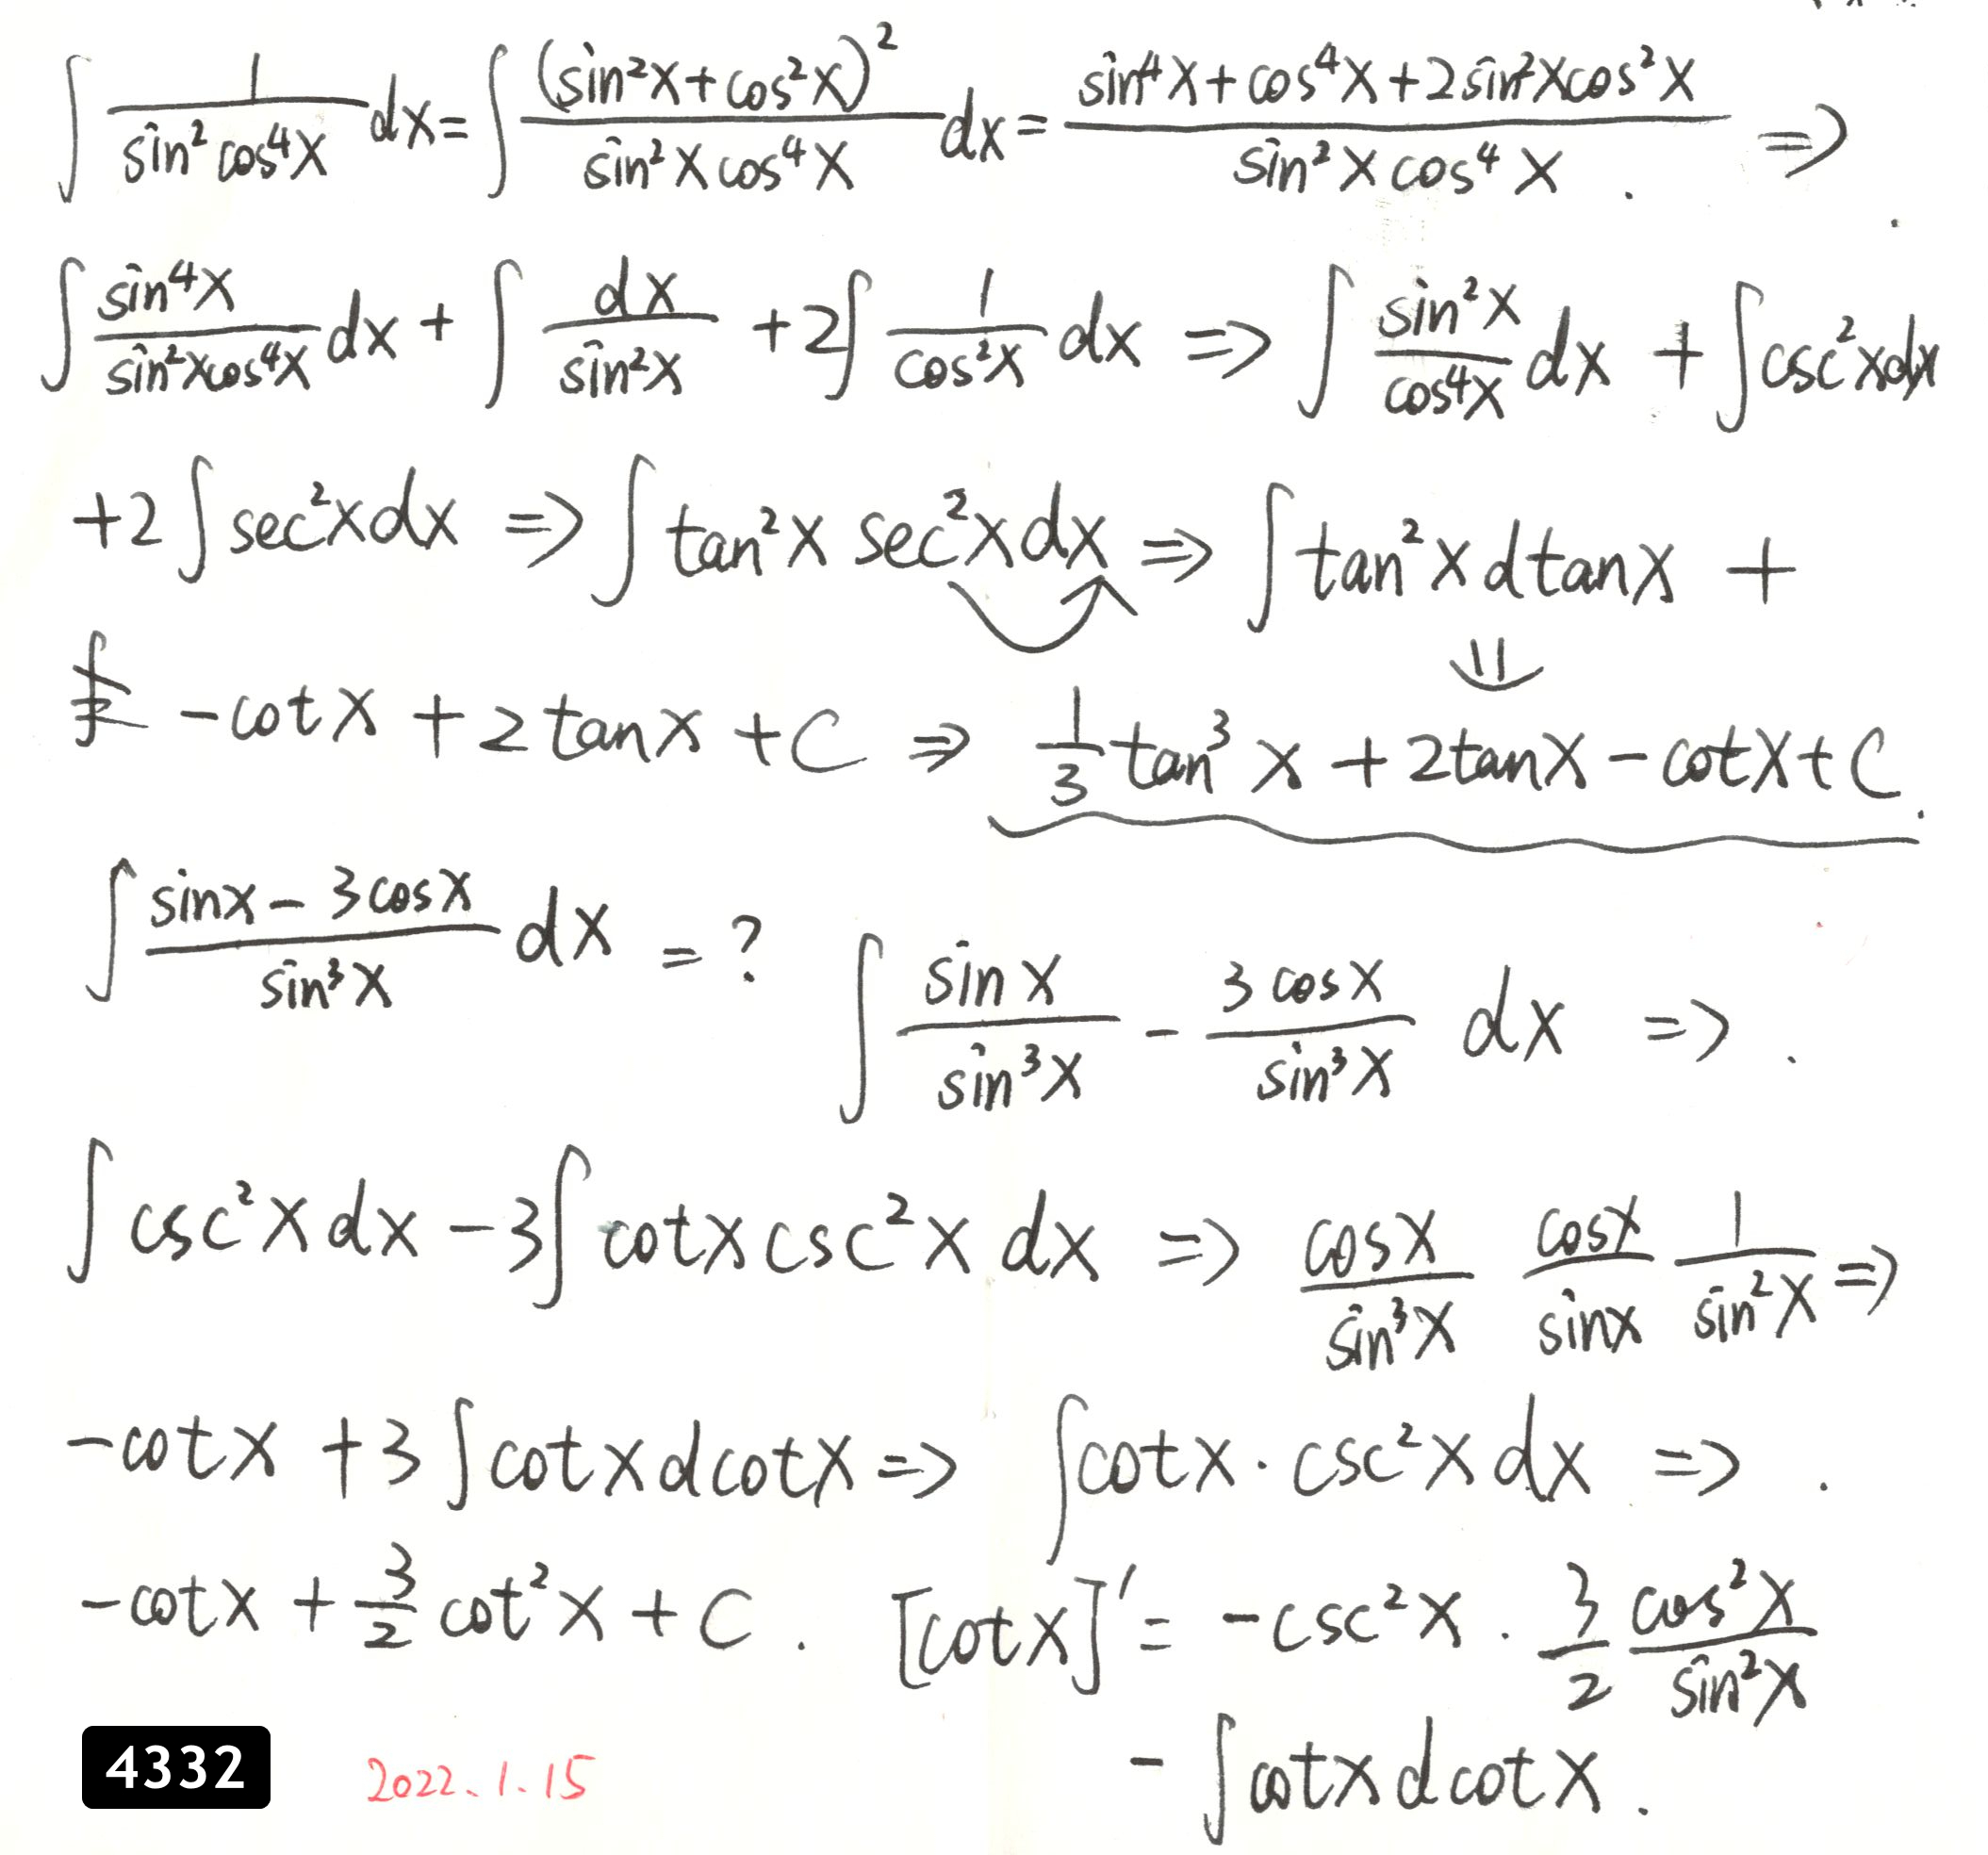 ∫ 1/(sin² cos⁴x) dx = ∫ (sin²x+cos²x)²/(sin²x cos⁴x) dx = (sin⁴x+cos⁴x+2sin²xcos²x)/(sin²x cos⁴x) ⇒
∫ sin⁴x/(sin²xcos⁴x) dx + ∫ dx/sin²x + 2∫ 1/cos²x dx ⇒ ∫ sin²x/cos⁴x dx + ∫csc²xdx
+2∫sec²xdx ⇒ ∫tan²x sec²xdx ⇒ ∫tan²x dtanx +
-cotx + 2tanx + C ⇒ 1/3 tan³x + 2tanx - cotx + C.
∫ (sinx - 3cosx)/sin³x dx = ?
∫ sinx/sin³x - 3cosx/sin³x dx ⇒.
∫csc²xdx - 3∫cotxcsc²x dx ⇒ cosx/sin³x cosx/sinx 1/sin²x ⇒
-cotx + 3∫cotxdcotx ⇒ ∫cotx·csc²xdx ⇒.
-cotx + 3/2 cot²x + C. [cotx]' = -csc²x. 3/2 cos²x/sin²x
-∫cotxdcotx.
4332 2022.1.15